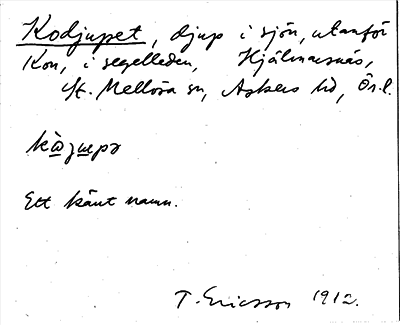 Kodjupet, djup i sjön, utanför
Kon, i segelleden, Hjälmarsnäs,
St. Mellösa sn, Askers hd, Ör. l.
Ett känt namn.
T. Ericsson 1912.